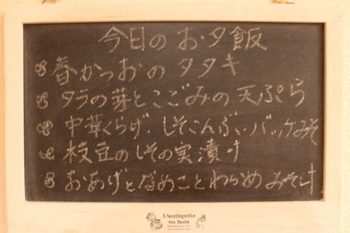 今日のお夕飯
春かつおのタタキ
タラの芽とこごみの天ぷら
中華くらげ.しそこんぶ.バッケみそ
枝豆のしその実漬け
おあげとなめことわらめみそ汁
L'antiquite
en bois